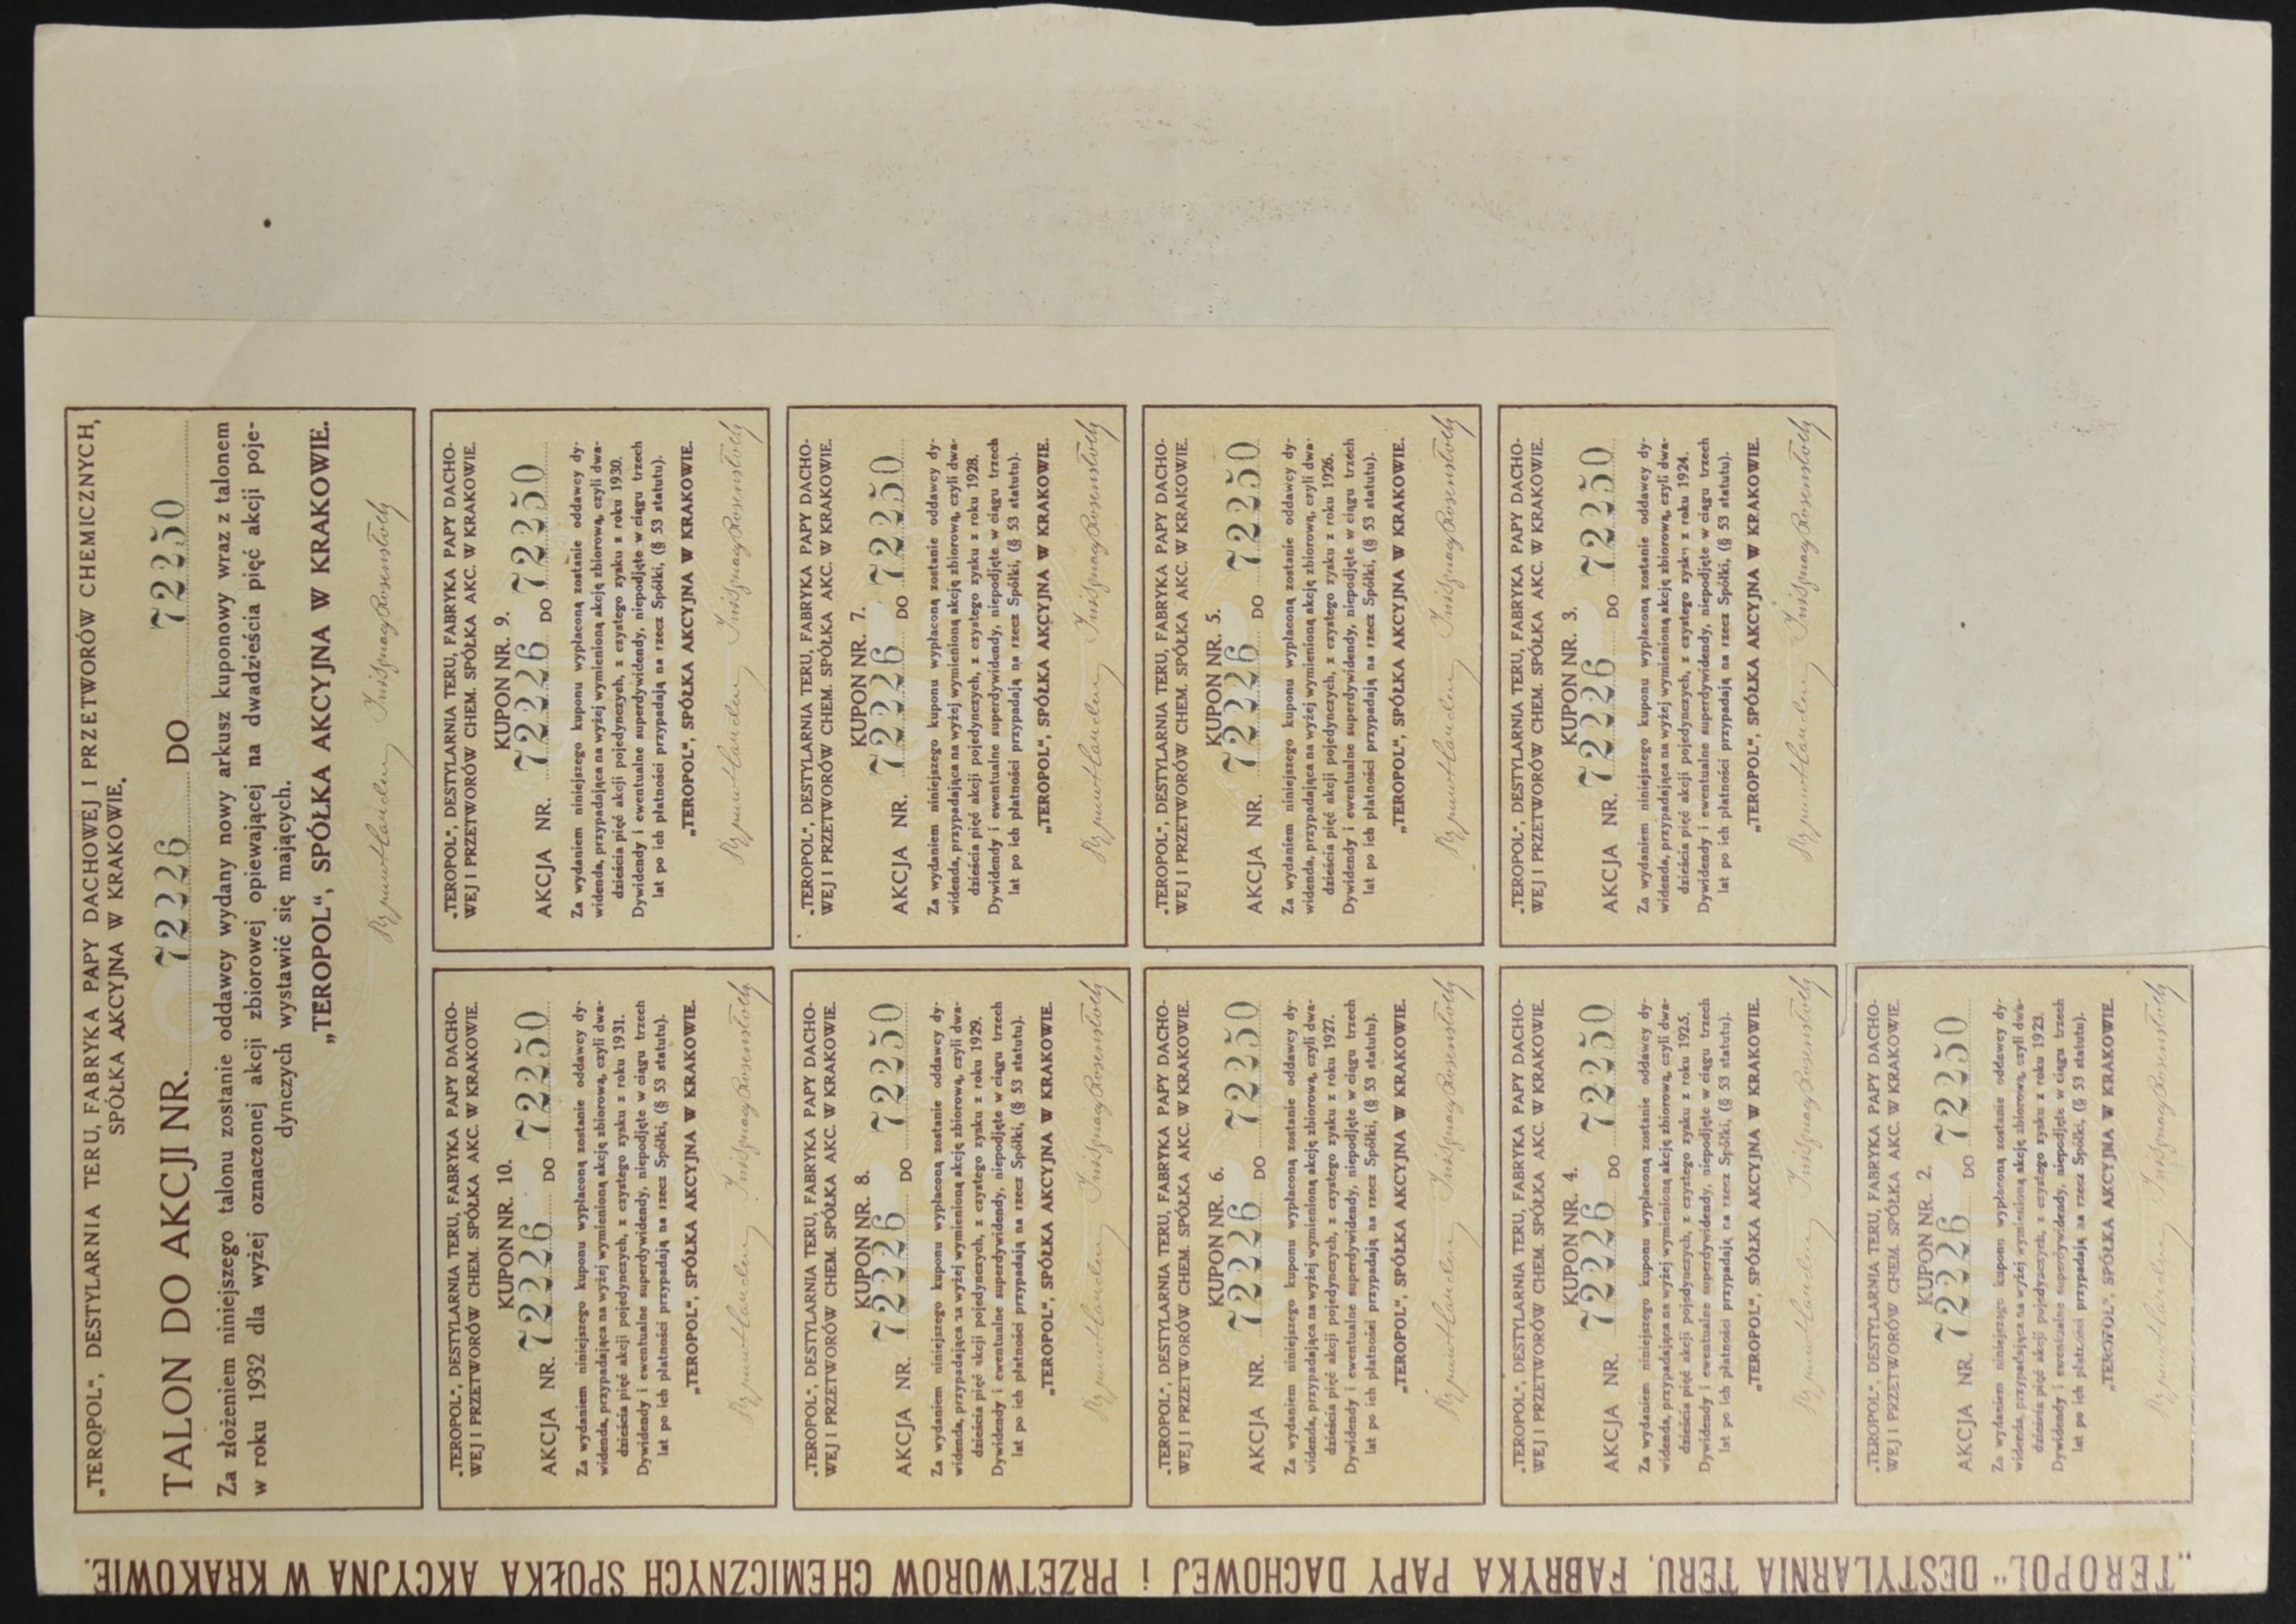 „TEROPOL“, DESTYLARNIA TERU, FABRYKA PAPY DACHOWEJ I PRZETWORÓW CHEMICZNYCH,
SPÓŁKA AKCYJNA W KRAKOWIE.
TALON DO AKCJI NR. 72226 DO 72250
Za złożeniem niniejszego talonu zostanie oddawcy wydany nowy arkusz kuponowy wraz z talonem
w roku 1932 dla wyżej oznaczonej akcji zbiorowej opiewającej na dwadzieścia pięć akcji poje-
dynczych wystawić się mających.
„TEROPOL“, SPÓŁKA AKCYJNA W KRAKOWIE.
„TEROPOL“, DESTYLARNIA TERU, FABRYKA PAPY DACHO-
WEJ I PRZETWORÓW CHEM. SPÓŁKA AKC. W KRAKOWIE.
KUPON NR. 10.
AKCJA NR. 72226 DO 72250
Za wydaniem niniejszego kuponu wypłaconą zostanie oddawcy dy-
widenda, przypadająca na wyżej wymienioną akcję zbiorową, czyli dwa-
dzieścia pięć akcji pojedynczych, z czystego zysku z roku 1931.
Dywidendy i ewentualne superdywidendy, niepodjęte w ciągu trzech
lat po ich płatności przypadają na rzecz Spółki, (§ 53 statutu).
„TEROPOL“, SPÓŁKA AKCYJNA W KRAKOWIE.
„TEROPOL“, DESTYLARNIA TERU, FABRYKA PAPY DACHO-
WEJ I PRZETWORÓW CHEM. SPÓŁKA AKC. W KRAKOWIE.
KUPON NR. 9.
AKCJA NR. 72226 DO 72250
Za wydaniem niniejszego kuponu wypłaconą zostanie oddawcy dy-
widenda, przypadająca na wyżej wymienioną akcję zbiorową, czyli dwa-
dzieścia pięć akcji pojedynczych, z czystego zysku z roku 1930.
Dywidendy i ewentualne superdywidendy, niepodjęte w ciągu trzech
lat po ich płatności przypadają na rzecz Spółki, (§ 53 statutu).
„TEROPOL“, SPÓŁKA AKCYJNA W KRAKOWIE.
„TEROPOL“, DESTYLARNIA TERU, FABRYKA PAPY DACHO-
WEJ I PRZETWORÓW CHEM. SPÓŁKA AKC. W KRAKOWIE.
KUPON NR. 8.
AKCJA NR. 72226 DO 72250
Za wydaniem niniejszego kuponu wypłaconą zostanie oddawcy dy-
widenda, przypadająca na wyżej wymienioną akcję zbiorową, czyli dwa-
dzieścia pięć akcji pojedynczych, z czystego zysku z roku 1929.
Dywidendy i ewentualne superdywidendy, niepodjęte w ciągu trzech
lat po ich płatności przypadają na rzecz Spółki, (§ 53 statutu).
„TEROPOL“, SPÓŁKA AKCYJNA W KRAKOWIE.
„TEROPOL“, DESTYLARNIA TERU, FABRYKA PAPY DACHO-
WEJ I PRZETWORÓW CHEM. SPÓŁKA AKC. W KRAKOWIE.
KUPON NR. 7.
AKCJA NR. 72226 DO 72250
Za wydaniem niniejszego kuponu wypłaconą zostanie oddawcy dy-
widenda, przypadająca na wyżej wymienioną akcję zbiorową, czyli dwa-
dzieścia pięć akcji pojedynczych, z czystego zysku z roku 1928.
Dywidendy i ewentualne superdywidendy, niepodjęte w ciągu trzech
lat po ich płatności przypadają na rzecz Spółki, (§ 53 statutu).
„TEROPOL“, SPÓŁKA AKCYJNA W KRAKOWIE.
„TEROPOL“, DESTYLARNIA TERU, FABRYKA PAPY DACHO-
WEJ I PRZETWORÓW CHEM. SPÓŁKA AKC. W KRAKOWIE.
KUPON NR. 6.
AKCJA NR. 72226 DO 72250
Za wydaniem niniejszego kuponu wypłaconą zostanie oddawcy dy-
widenda, przypadająca na wyżej wymienioną akcję zbiorową, czyli dwa-
dzieścia pięć akcji pojedynczych, z czystego zysku z roku 1927.
Dywidendy i ewentualne superdywidendy, niepodjęte w ciągu trzech
lat po ich płatności przypadają na rzecz Spółki, (§ 53 statutu).
„TEROPOL“, SPÓŁKA AKCYJNA W KRAKOWIE.
„TEROPOL“, DESTYLARNIA TERU, FABRYKA PAPY DACHO-
WEJ I PRZETWORÓW CHEM. SPÓŁKA AKC. W KRAKOWIE.
KUPON NR. 5.
AKCJA NR. 72226 DO 72250
Za wydaniem niniejszego kuponu wypłaconą zostanie oddawcy dy-
widenda, przypadająca na wyżej wymienioną akcję zbiorową, czyli dwa-
dzieścia pięć akcji pojedynczych, z czystego zysku z roku 1926.
Dywidendy i ewentualne superdywidendy, niepodjęte w ciągu trzech
lat po ich płatności przypadają na rzecz Spółki, (§ 53 statutu).
„TEROPOL“, SPÓŁKA AKCYJNA W KRAKOWIE.
„TEROPOL“, DESTYLARNIA TERU, FABRYKA PAPY DACHO-
WEJ I PRZETWORÓW CHEM. SPÓŁKA AKC. W KRAKOWIE.
KUPON NR. 4.
AKCJA NR. 72226 DO 72250
Za wydaniem niniejszego kuponu wypłaconą zostanie oddawcy dy-
widenda, przypadająca na wyżej wymienioną akcję zbiorową, czyli dwa-
dzieścia pięć akcji pojedynczych, z czystego zysku z roku 1925.
Dywidendy i ewentualne superdywidendy, niepodjęte w ciągu trzech
lat po ich płatności przypadają na rzecz Spółki, (§ 53 statutu).
„TEROPOL“, SPÓŁKA AKCYJNA W KRAKOWIE.
„TEROPOL“, DESTYLARNIA TERU, FABRYKA PAPY DACHO-
WEJ I PRZETWORÓW CHEM. SPÓŁKA AKC. W KRAKOWIE.
KUPON NR. 3.
AKCJA NR. 72226 DO 72250
Za wydaniem niniejszego kuponu wypłaconą zostanie oddawcy dy-
widenda, przypadająca na wyżej wymienioną akcję zbiorową, czyli dwa-
dzieścia pięć akcji pojedynczych, z czystego zysku z roku 1924.
Dywidendy i ewentualne superdywidendy, niepodjęte w ciągu trzech
lat po ich płatności przypadają na rzecz Spółki, (§ 53 statutu).
„TEROPOL“, SPÓŁKA AKCYJNA W KRAKOWIE.
„TEROPOL“, DESTYLARNIA TERU, FABRYKA PAPY DACHO-
WEJ I PRZETWORÓW CHEM. SPÓŁKA AKC. W KRAKOWIE.
KUPON NR. 2.
AKCJA NR. 72226 DO 72250
Za wydaniem niniejszego kuponu wypłaconą zostanie oddawcy dy-
widenda, przypadająca na wyżej wymienioną akcję zbiorową, czyli dwa-
dzieścia pięć akcji pojedynczych, z czystego zysku z roku 1923.
Dywidendy i ewentualne superdywidendy, niepodjęte w ciągu trzech
lat po ich płatności przypadają na rzecz Spółki, (§ 53 statutu).
„TEROPOL“, SPÓŁKA AKCYJNA W KRAKOWIE.
„TEROPOL“ DESTYLARNIA TERU, FABRYKA PAPY DACHOWEJ i PRZETWORÓW CHEMICZNYCH SPÓŁKA AKCYJNA W KRAKOWIE.